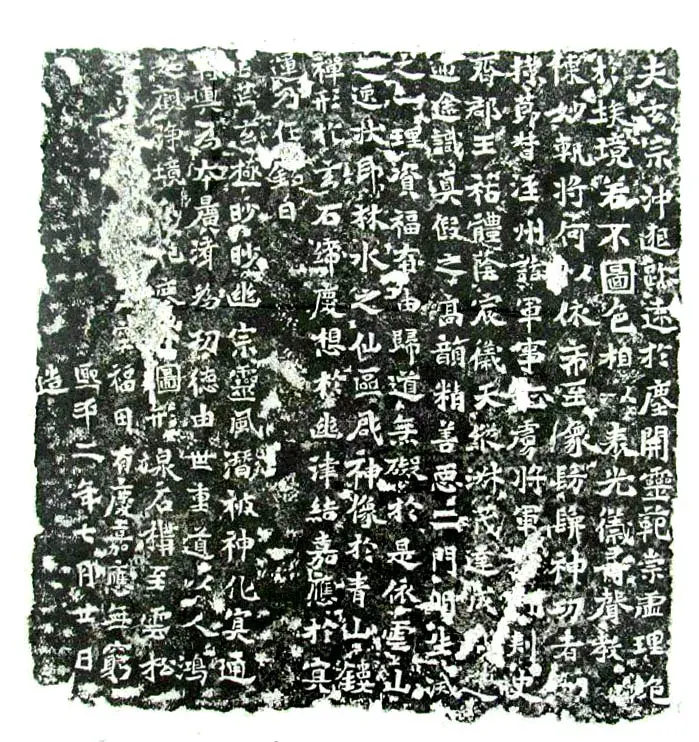 夫玄宗沖邈跡遠於塵開靈範崇虛理絕
於埃境若不圖色相以表光儀尋聲教
陳妙軌將何以依希至像髣歸神功者
持節督涇州諸軍事征虜將軍刺史
齊郡王祐體蔭宸儀天縱淑茂達成之
通途識真假之高韻精善惡二門明生滅
之一理資福有由歸道無礙於是依雲山
之逸狀即林水之仙區啟神像於青山鏤
禪形於玄石締慶想於幽津結嘉應於冥
運乃作銘曰
茫茫玄極眇眇幽宗靈風潛被神化冥通
為本廣濟為功德由世重道以人鴻
觀淨境圖形泉石構至雲松
福田有慶嘉應無窮
熙平二年七月廿日
造